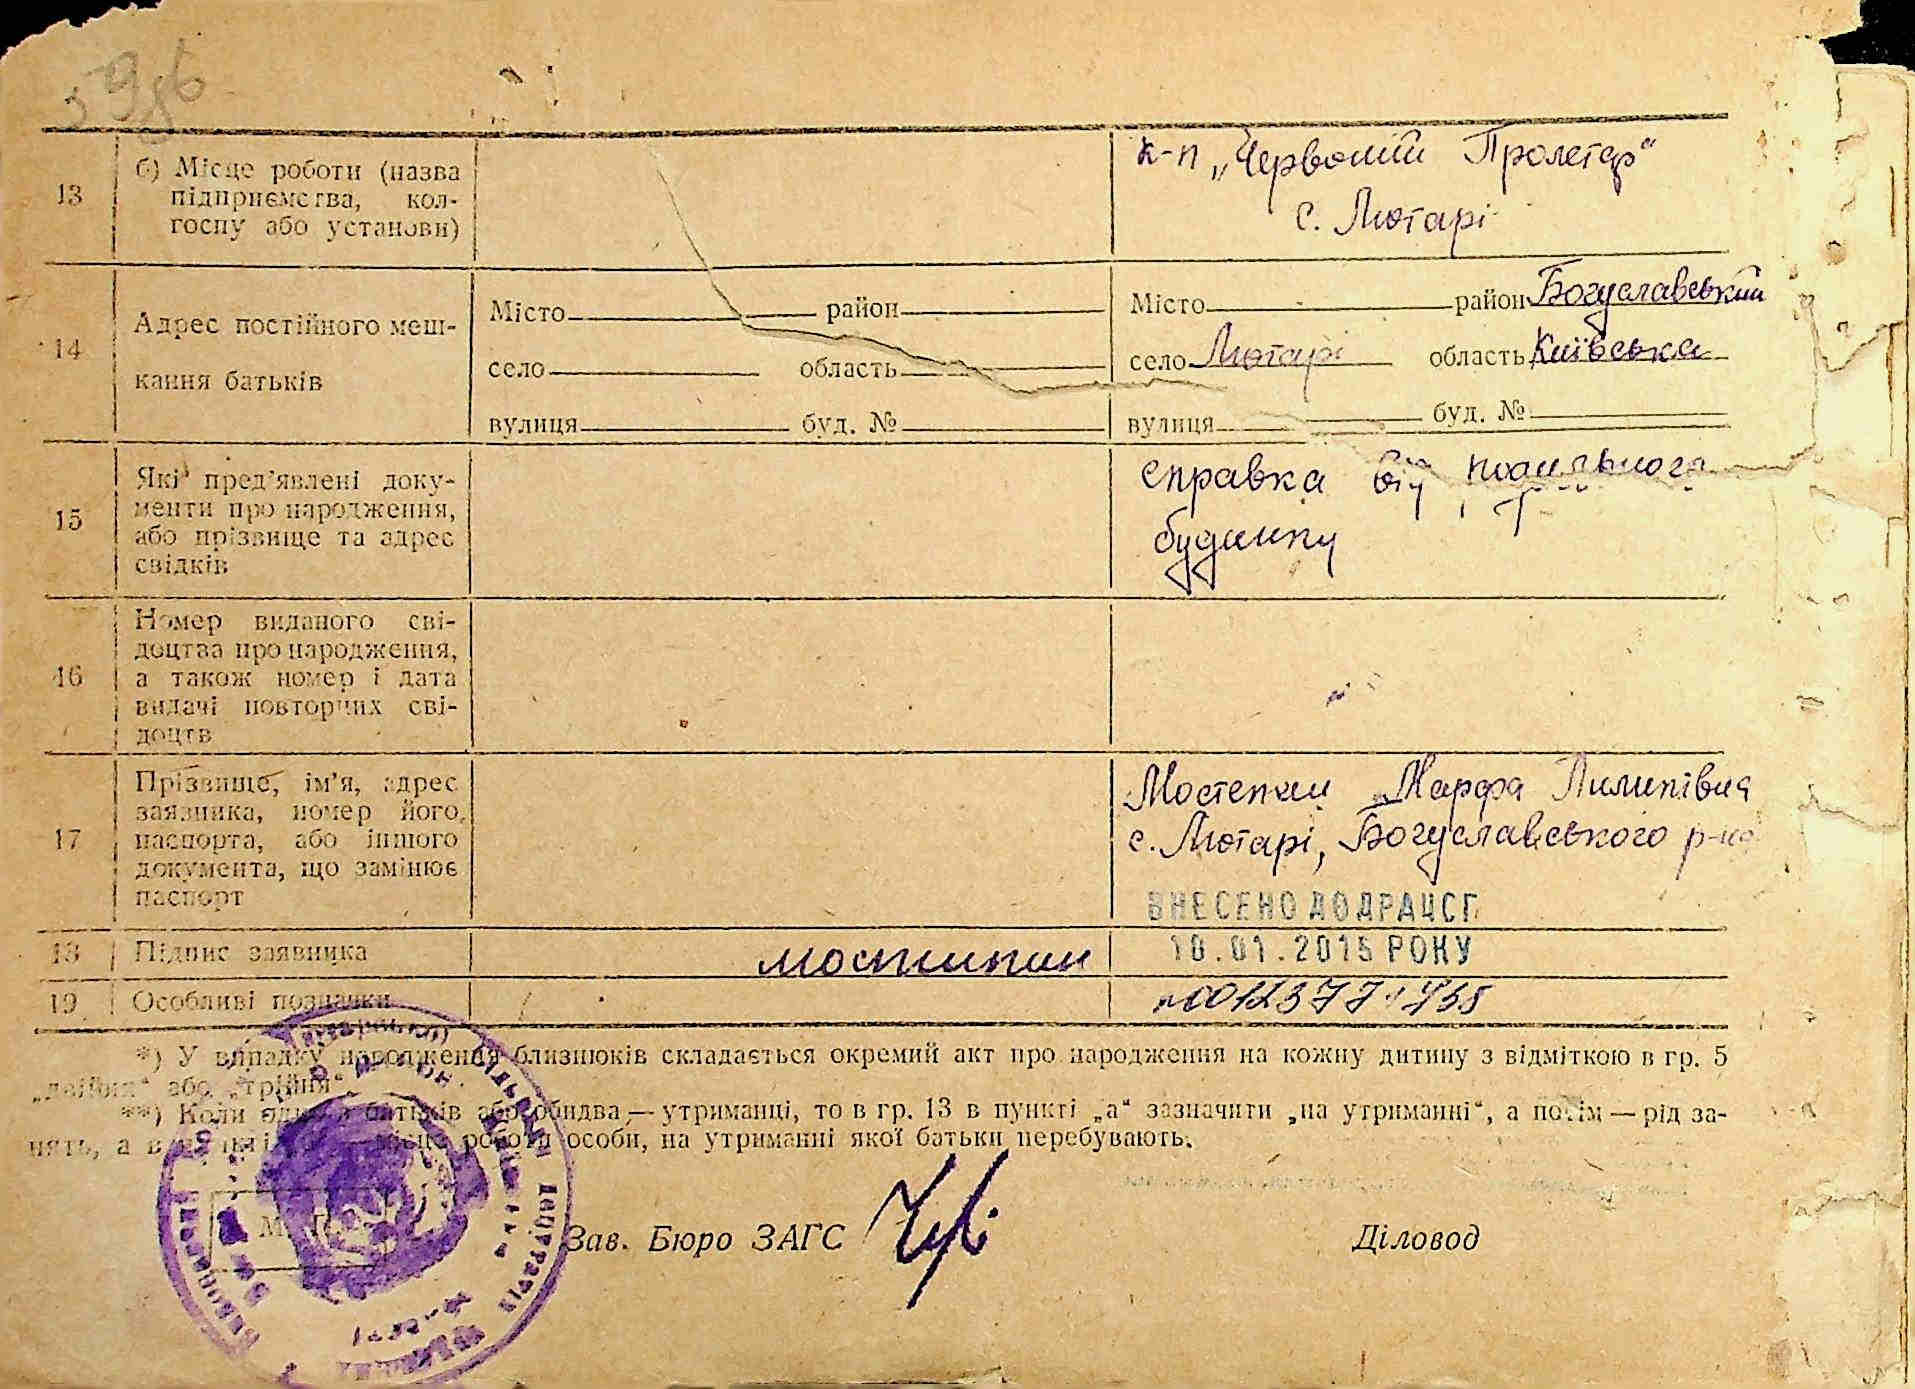 13 б) Місце роботи (назва
підприємства, кол-
госпу або установи)
к-п „Червоний Пролетар“
с. Лютарі
14 Адрес постійного меш-
кання батьків
Місто район Місто район Богуславський
село область село Лютарі область Київська
вулиця буд. № вулиця буд. №
15 Які пред'явлені доку-
менти про народження,
або прізвище та адрес
свідків
справка від
будинку
16 Номер виданого сві-
доцтва про народження,
а також номер і дата
видачі повторних сві-
доцтв
17 Прізвище, ім'я, адрес
заявника, номер його
паспорта, або іншого
документа, що замінює
паспорт
Мостепан Марфа Пилипівна
с. Лютарі, Богуславського р-на
ВНЕСЕНО ДО ДРАЦСГ
18 Підпис заявника
10.01.2015 РОКУ
19 Особливі позначки
*) У випадку народження близнюків складається окремий акт про народження на кожну дитину з відміткою в гр. 5
„двійня“ або „трійня“.
**) Коли один з батьків або обидва — утриманці, то в гр. 13 в пункті „а“ зазначити „на утриманні“, а потім — рід за-
нять, а в місце роботи особи, на утриманні якої батьки перебувають.
Зав. Бюро ЗАГС Діловод